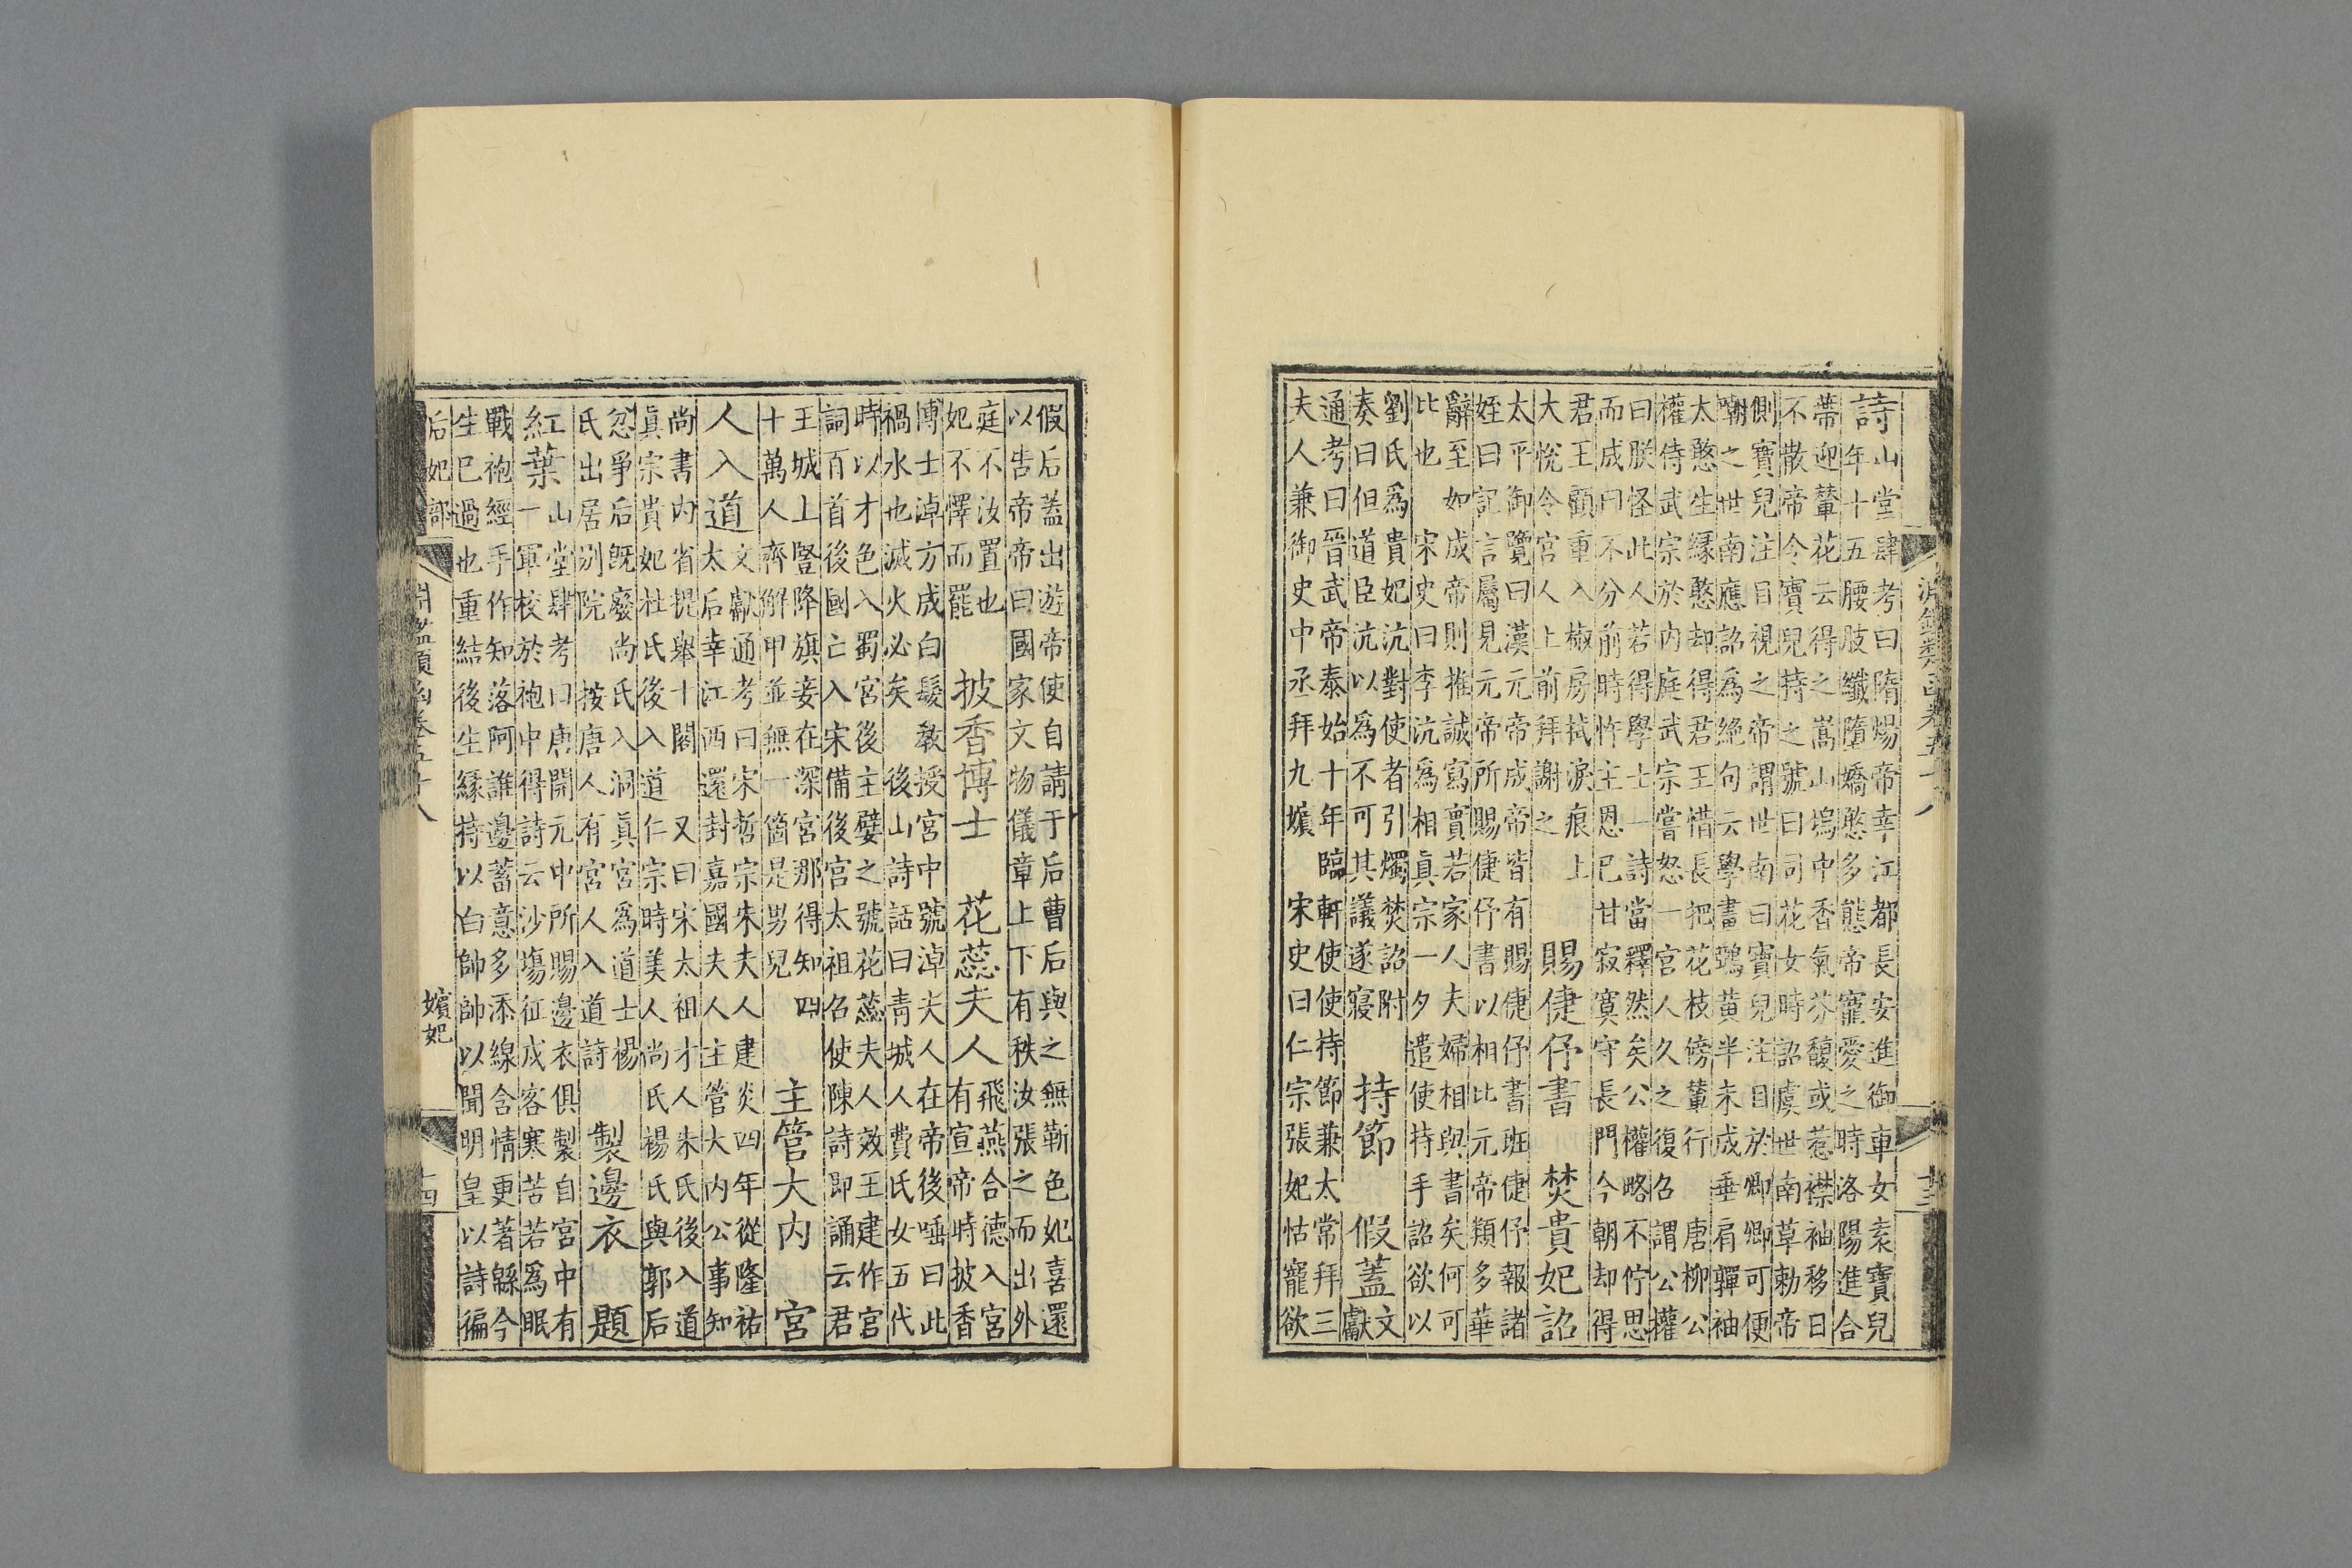 淵鑑類函卷五十八
十三
詩
山堂肆考曰隋煬帝幸江都長安進御車女袁寶兒
年十五腰肢纖墮嬌憨多態帝寵愛之時洛陽進合
蒂迎輦花云得之嵩山塢中香氣芬馥或惹襟袖移日
不散帝令寶兒持之號曰司花女時詔虞世南草勅帝
側寶兒注目視之帝謂世南曰寶兒注目於卿卿可便
嘲之世南應詔爲絶句云學畫鵶黄半未成垂肩嚲袖
太憨生縁憨却得君王惜長把花枝傍輦行 唐柳公
權侍武宗於内庭武宗嘗怒一宮人久之復召謂公權
曰朕怪此人若得學士一詩當釋然矣公權略不佇思
而成曰不分前時忤主恩已甘寂寞守長門今朝却得
君王顧重入椒房拭淚痕上
大悅令宮人上前拜謝之
賜倢伃書 焚貴妃詔
太平御覽曰漢元帝成帝皆有賜倢伃書班倢伃報諸
姪曰記言屬見元帝所賜倢伃書以相比元帝類多華
辭至如成帝則推誠寫實若家人夫婦相與書矣何可
比也 宋史曰李沆爲相真宗一夕遣使持手詔欲以
劉氏爲貴妃沆對使者引燭焚詔附
奏曰但道臣沆以爲不可其議遂寢
持節 假蓋
文
獻
通考曰晉武帝泰始十年臨軒使使持節兼太常拜三
夫人兼御史中丞拜九嬪 宋史曰仁宗張妃怙寵欲
假后蓋出遊帝使自請于后曹后與之無靳色妃喜還
以告帝帝曰國家文物儀章上下有秩汝張之而出外
庭不汝置也
妃不懌而罷
披香博士 花蕊夫人
飛燕合德入宮
有宣帝時披香
博士淖方成白髮教授宮中號淖夫人在帝後唾曰此
禍水也滅火必矣 後山詩話曰青城人費氏女五代
時以才色入蜀宮後主嬖之號花蕊夫人效王建作宮
詞百首後國亡入宋備後宮太祖召使陳詩即誦云君
王城上豎降旗妾在深宮那得知四
十萬人齊解甲並無一箇是男兒
主管大内 宮
人入道
文獻通考曰宋哲宗朱夫人建炎四年從隆祐
太后幸江西還封嘉國夫人主管大内公事知
尚書内省提舉十閣 又曰宋太祖才人朱氏後入道
真宗貴妃杜氏後入道仁宗時美人尚氏楊氏與郭后
忽爭后既廢尚氏入洞真宮爲道士楊
氏出居別院 按唐人有宮人入道詩
製邊衣 題
紅葉
山堂肆考曰唐開元中所賜邊衣俱製自宮中有
一軍校於袍中得詩云沙塲征戍客寒苦若爲眠
戰袍經手作知落阿誰邊蓄意多添線含情更著緜今
生已過也重結後生縁持以白帥帥以聞明皇以詩徧
后妃部
淵鑑類函卷五十八
嬪妃
十四